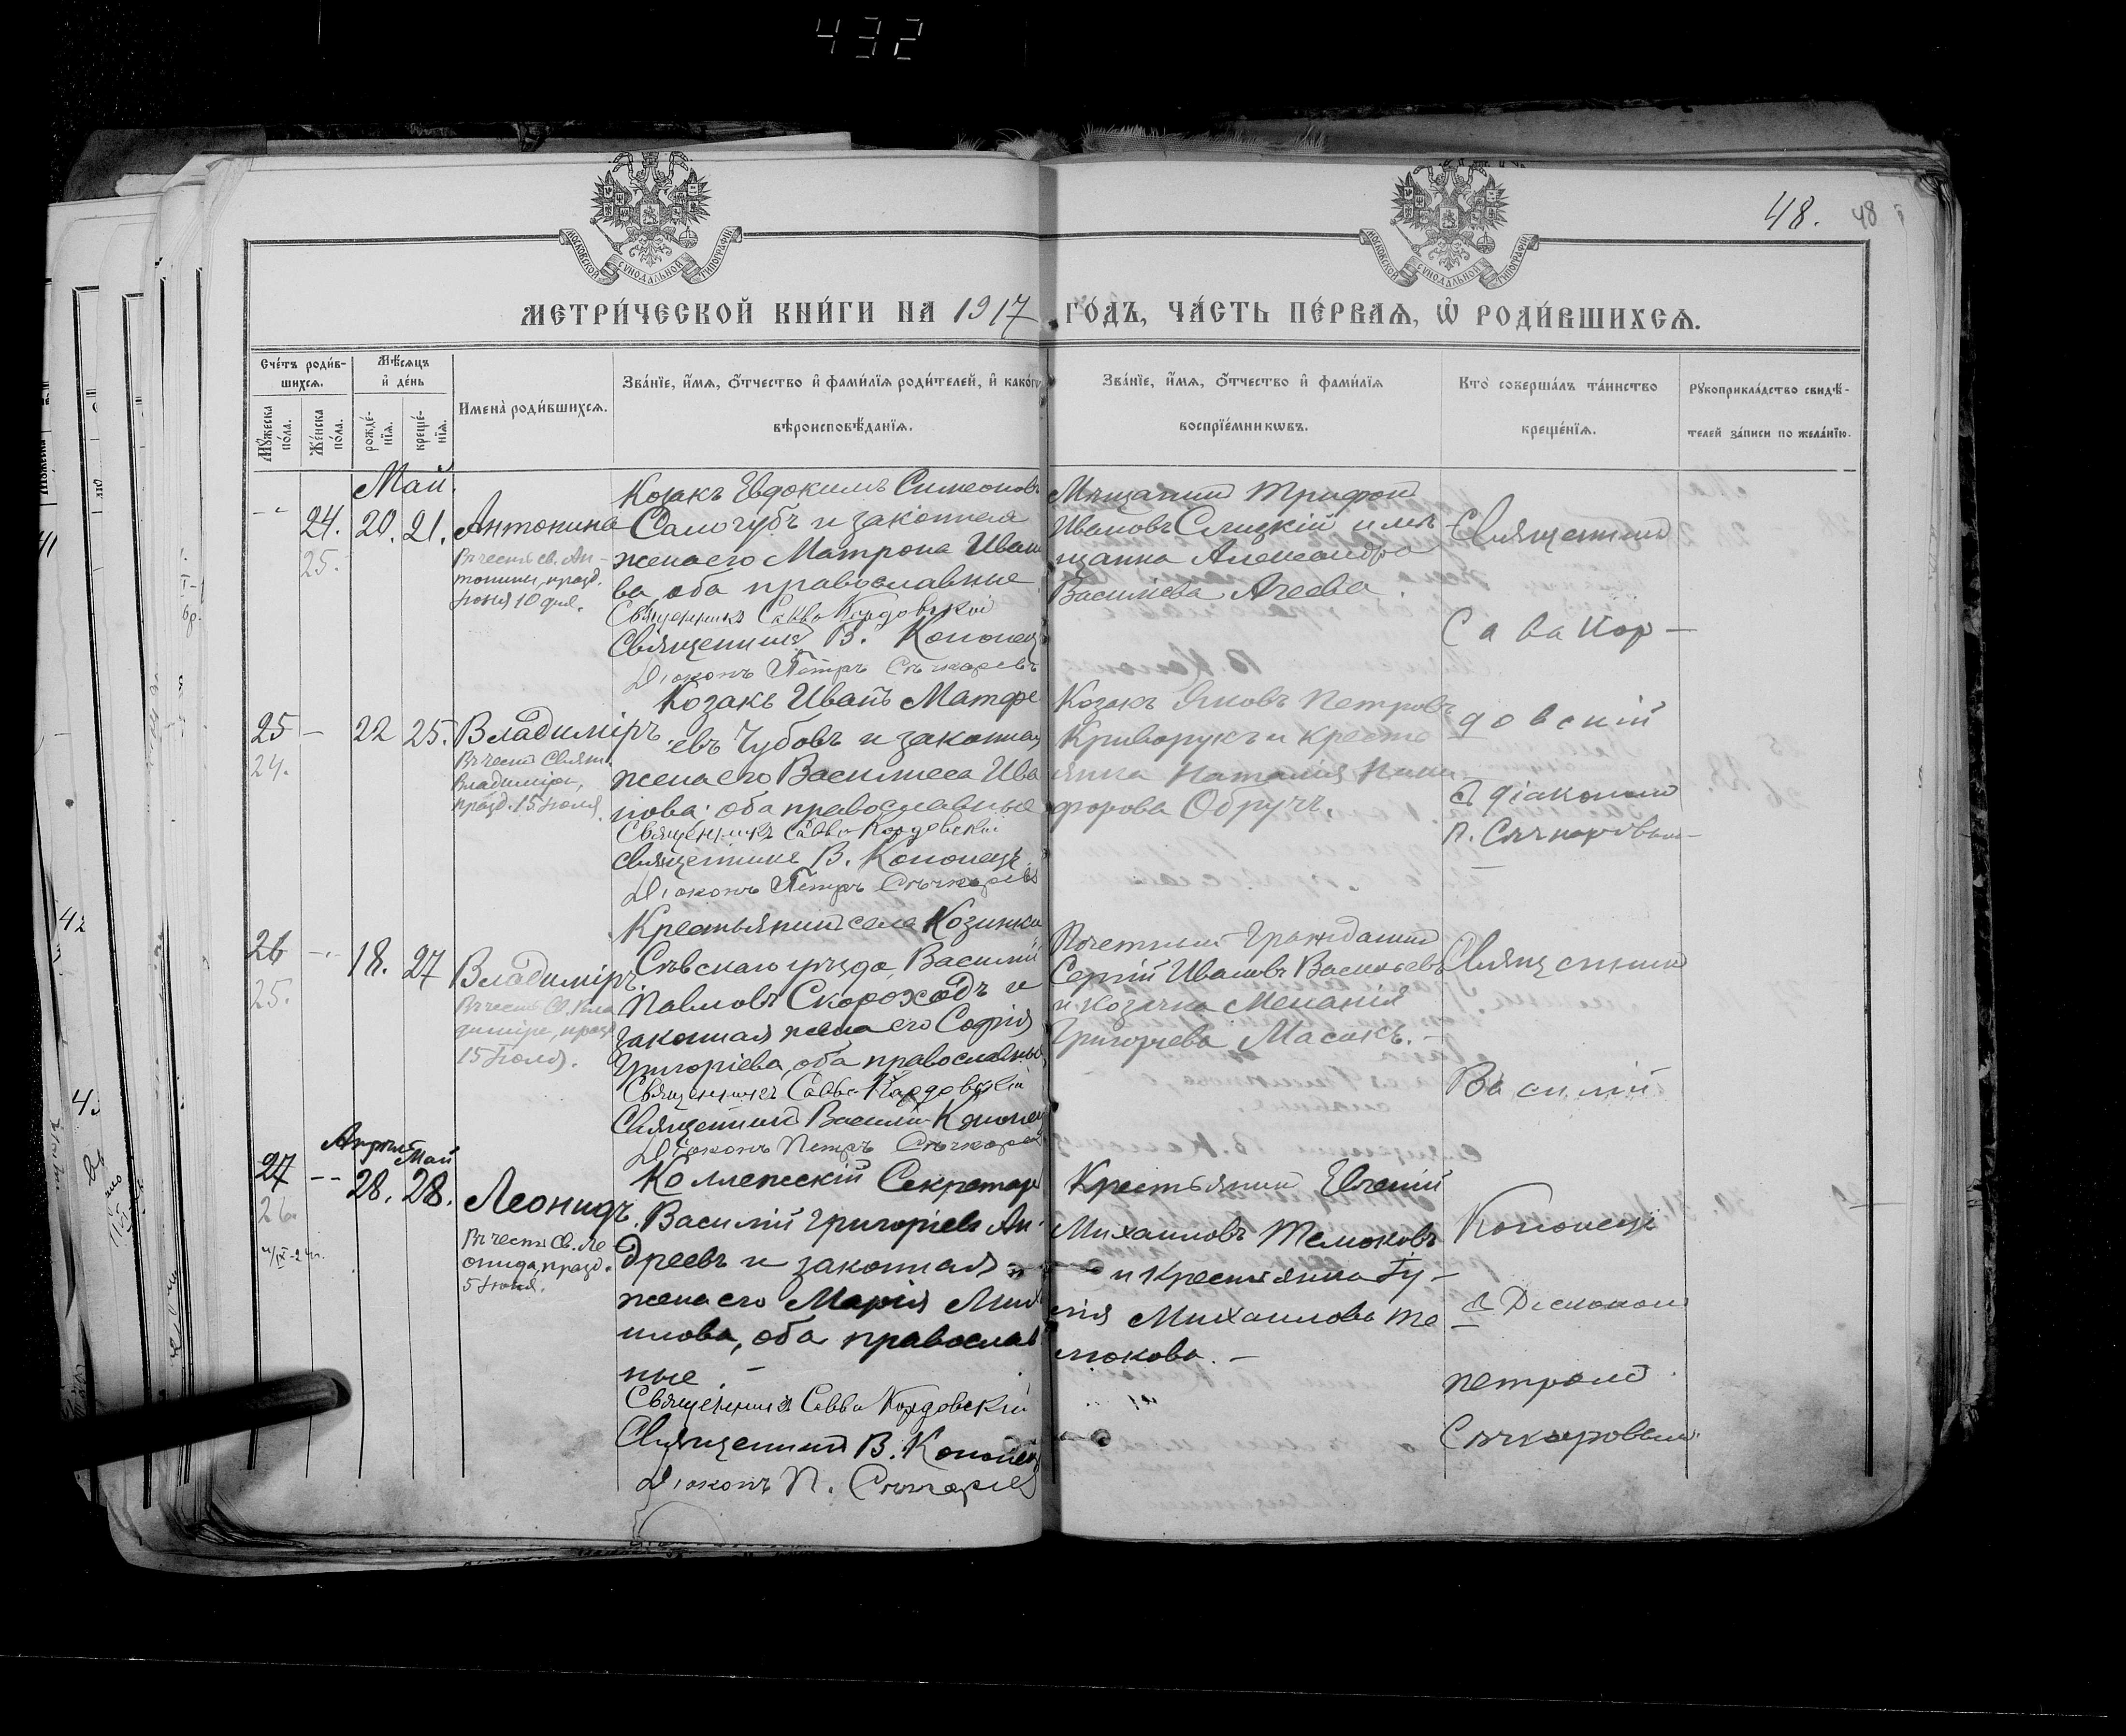 432
МОСКОВСКОЙ СѴНОДАЛЬНОЙ ТИПОГРАФІИ
МОСКОВСКОЙ СѴНОДАЛЬНОЙ ТИПОГРАФІИ
48. 48
МЕТРИ́ЧЕСКОЙ КНИ́ГИ НА 1917 ГО́ДЪ, ЧА́СТЬ ПЕ́РВАѦ, Ѿ РОДИ́ВШИХСѦ.
Сче́тъ роди́в-
шихсѧ.
Мꙋ́жеска по́ла.
Же́нска по́ла.
Мѣ́сѧцъ
и҆ де́нь
рожде́-
нїѧ.
креще́-
нїѧ.
Имена̀ роди́вшихсѧ.
Зва́нїе, и҆́мѧ, ѻ҆́тчество и҆ фами́лїѧ роди́телей, и҆ како́гѡ
вѣроисповѣ́данїѧ.
Зва́нїе, и҆́мѧ, ѻ҆́тчество и҆ фами́лїѧ
воспрїе́мникѡвъ.
Кто̀ соверша́лъ та́инство
креще́нїѧ.
Рꙋкоприкла́дство свидѣ́-
телей за́писи по жела́нїю.
Май.
24. 20. 21. Антонина
25.
Въ честь св. Ан-
тонины, празд.
Іюня 10 дня.
Козакъ Евдокимъ Симеоновъ
Самогубъ и законная
жена его Матрона Ивано
ва, оба православные
Священникъ Савва Кордовскій
Священникъ В. Кононец
Діаконъ Петръ Сѣчкаревъ
Мѣщанинъ Трифонъ
Ивановъ Слицкій и мѣ-
щанка Александра
Василіева Агеева.
Священникъ
Сава Кор-
довскій
съ діакономъ
П. Сѣчкаровым-
25 - 22 25. Владиміръ
24.
Въ честь Свят.
Владиміра,
празд. 15 Іюля.
Козакъ Иванъ Матфе
евъ Чубовъ и законная
жена его Василисса Ива
нова; оба православные
Священникъ Савва Кордовскій
Священникъ В. Кононецъ
Діаконъ Петръ Сѣчкаревъ
Козакъ Яковъ Петровъ
Криворукъ и кресть
янка Наталія Ники
форова Обручъ.
26 - 18. 27 Владиміръ.
25.
Въ честь Св. Вла
диміра, празд
15 Іюля.
Крестьянинъ села Козинки
Сѣвскаго уѣзда, Василій
Павловъ Скороходъ и
законная жена его Софія
Григоріева, оба православные
Священникъ Савва Кордовскій
Священникъ Василій Кононец
Діаконъ Петръ Сѣчкарев
Почетный Гражданинъ
Сергій Ивановъ Васильевъ
и козачка Меланія
Григорьева Масакъ.-
Священникъ
Василій
Кононецъ
съ Діакономъ
Петромъ
Сѣчкаровымъ
Апрѣль Май
27 -- 28. 28. Леонидъ.
26.
Въ честь Св. Ле
онида, празд.
5 Іюня.
Коллежскій Секретарь
Василій Григоріевъ Ан-
дреевъ и законная
жена его Марія Миха
илова, оба православ
ные.-
Священникъ Савва Кордовскій
Священникъ В. Кононец
Діаконъ П. Сѣчкарев
Крестьянинъ Евгеній
Михаиловъ Телюковъ
и крестьянка Iу-
лія Михаилова Те
люкова.-